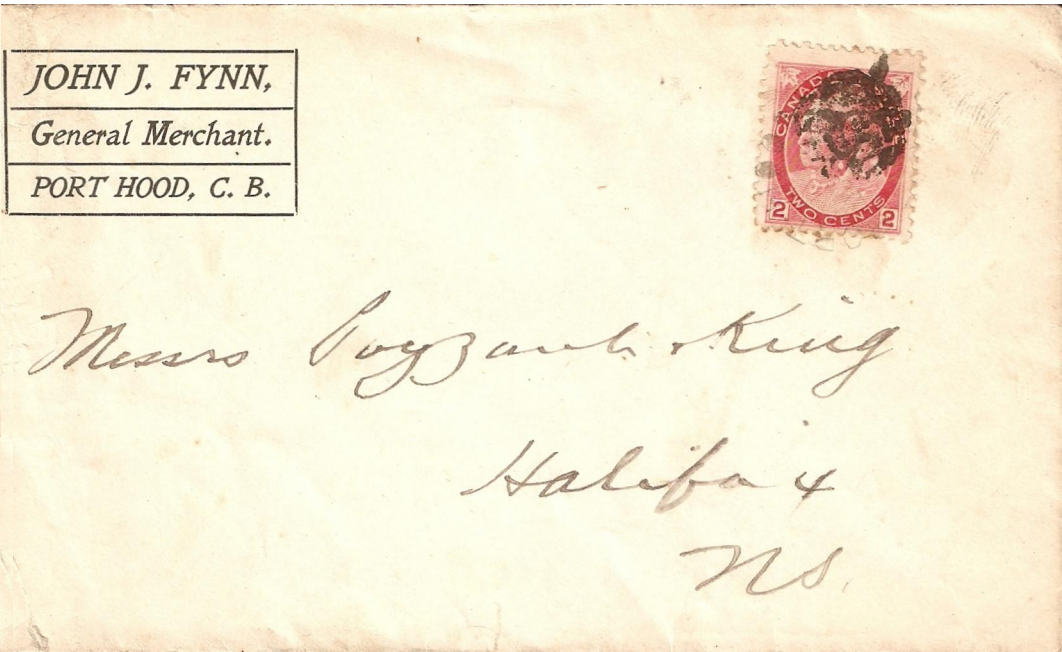 JOHN J. FYNN,
General Merchant.
PORT HOOD, C. B.
CANADA
TWO CENTS
2 2
Messrs Payzant & King
Halifax
NS.